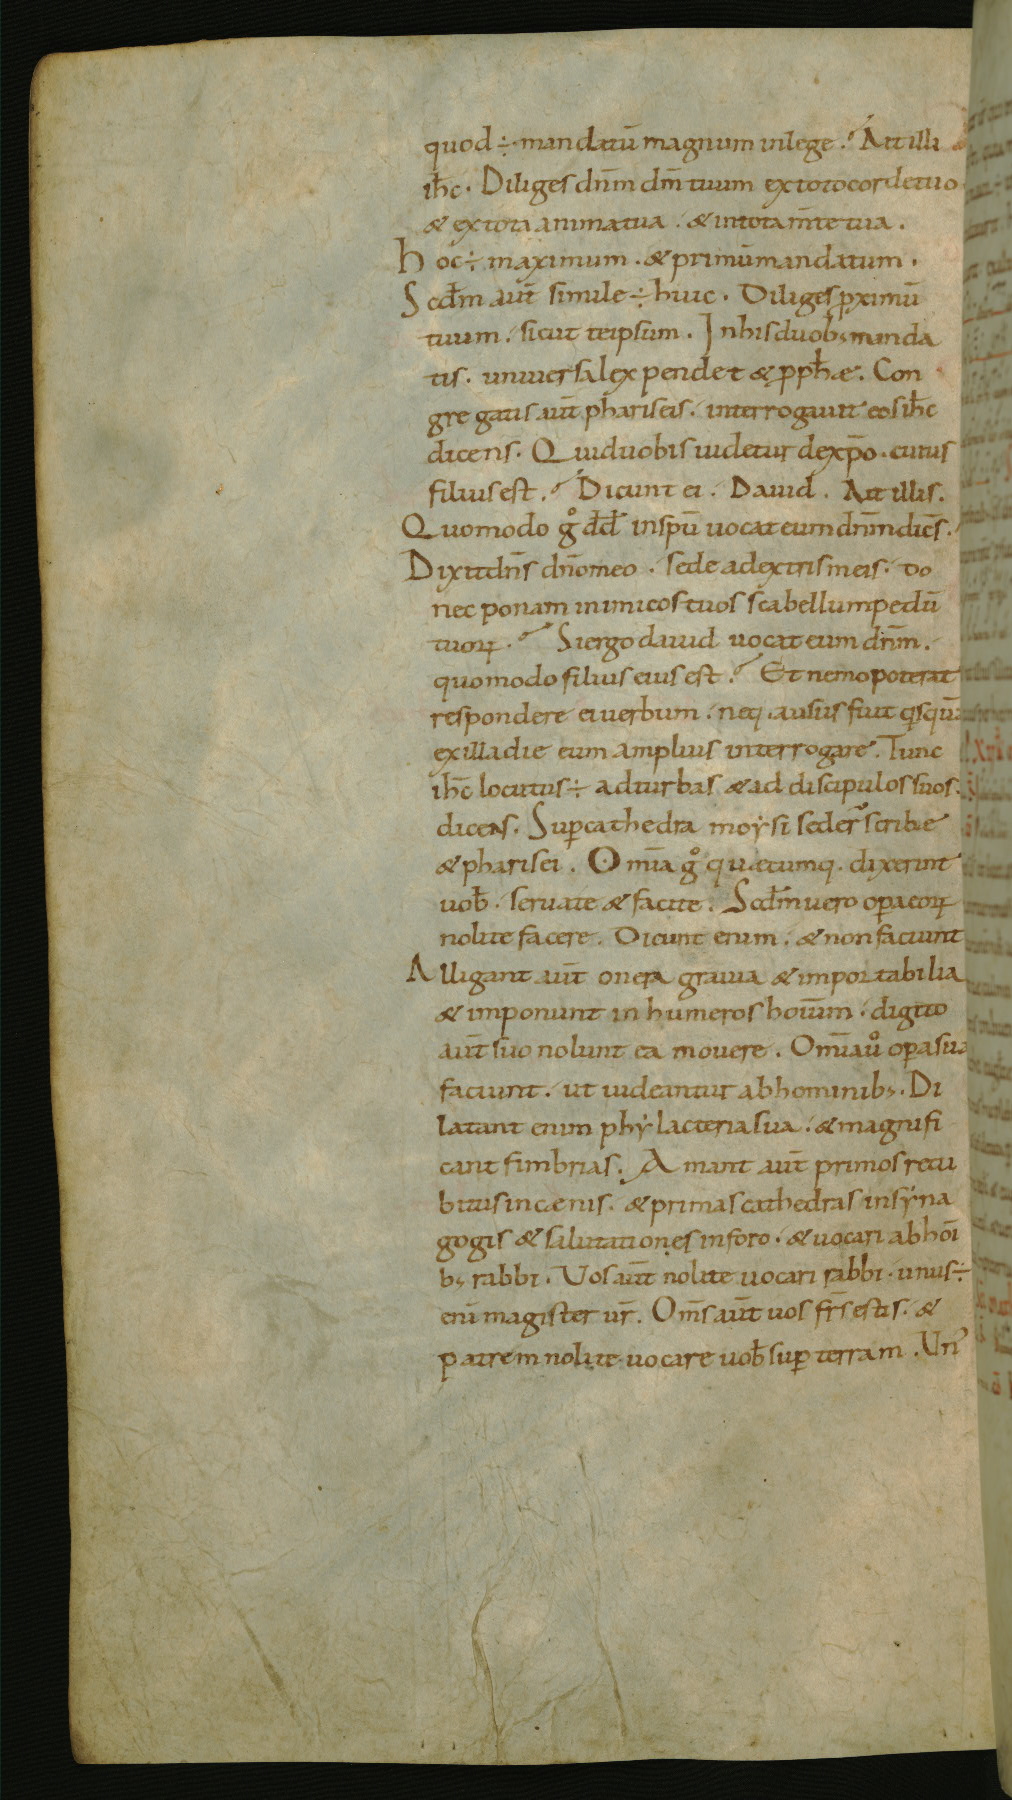 quod ÷ mandatū magnum in lege. Ait illi
ih̄c. Diliges dn̄m dm̄ tuum ex toto corde tuo
& ex tota anima tua. & in tota m̄te tua.
Hoc ÷ maximum. & primū mandatum.
Scd̄m aut̄ simile ÷ huic. Diliges pximū
tuum. sicut teipsum. In his duob; manda
tis. universa lex pendet & pph̄æ. Con
gregatis aut̄ phariseis. interrogavit eos ih̄c
dicens. Quid vobis videtur de xp̄o. cuius
filius est. Dicunt ei. David. Ait illis.
Quomodo gͦ dd̄ in spū vocat eum dn̄m dic̄s.
Dixit dn̄s dn̄o meo. sede a dextris meis. do
nec ponam inimicos tuos scabellum pedū
tuoꝝ. Si ergo david vocat eum dn̄m.
quomodo filius eius est. Et nemo poterat
respondere ei verbum. neq. ausus fuit qsquā
ex illa die eum amplius interrogare. Tunc
ih̄c locutus ÷ ad turbas & ad discipulos suos.
dicens. Sup cathedra moysi seder̄ scribæ
& pharisei. Om̄ia gͦ quætumq. dixerint
vob̄. servate & facite. Scd̄m vero opa eoꝝ
nolite facere. Dicunt enim. & non faciunt
Alligant aut̄ onera gravia & importabilia
& imponunt in humeros hoiūm. digito
aut̄ suo nolunt ea movere. Om̄ia auͦ opa sua
faciunt. ut videantur ab hominib;. Di
latant enim phylacteria sua. & magnifi
cant fimbrias. Amant aut̄ primos recu
bitus in cænis. & primas cathedras in syna
gogis & salutationes in foro. & vocari ab hoī
b; rabbi. Vos aut̄ nolite vocari rabbi. unus ÷
enī magister vr̄. Om̄s aut̄ vos fr̄s estis. &
patrem nolite vocare vob̄ sup terram. Un'